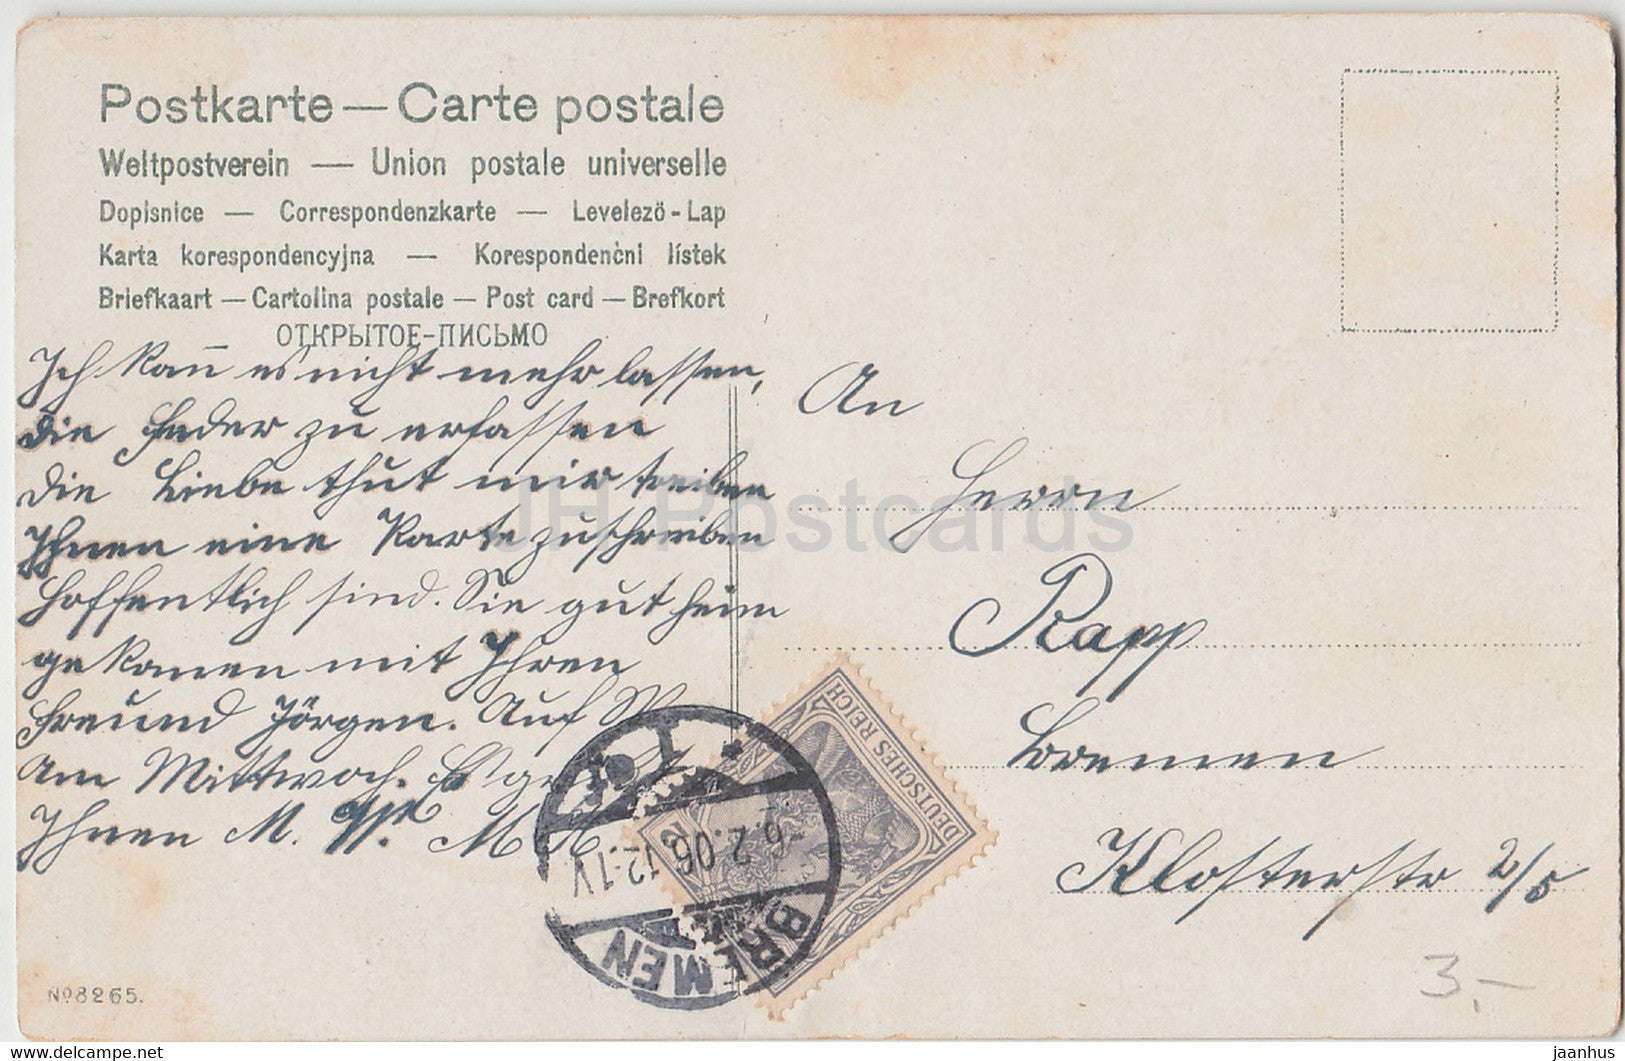 Postkarte — Carte postale
Weltpostverein — Union postale universelle
Dopisnice — Correspondenzkarte — Levelezö-Lap
Karta korespondencyjna — Korespondenčni lístek
Briefkaart — Cartolina postale — Post card — Brefkort
ОТКРЫТОЕ-ПИСЬМО
Ich kan̄ es nicht mehr lassen,
die Feder zu erfassen
die Liebe thut mir treiben
Ihnen eine Karte zuschreiben
Hoffentlich sind. Sie gut heim
gekomen mit Ihren
Freund Jörgen. Auf W
Am Mittwoch. Es
Ihnen M. W. M
An
Herrn
Rapp
Bremen
Klosterstr 2/5
DEUTSCHES REICH
BREMEN
-6.2.06. 12-1V
No 8265.
3,-
JH Postcards
jaanhus
delcampe.net